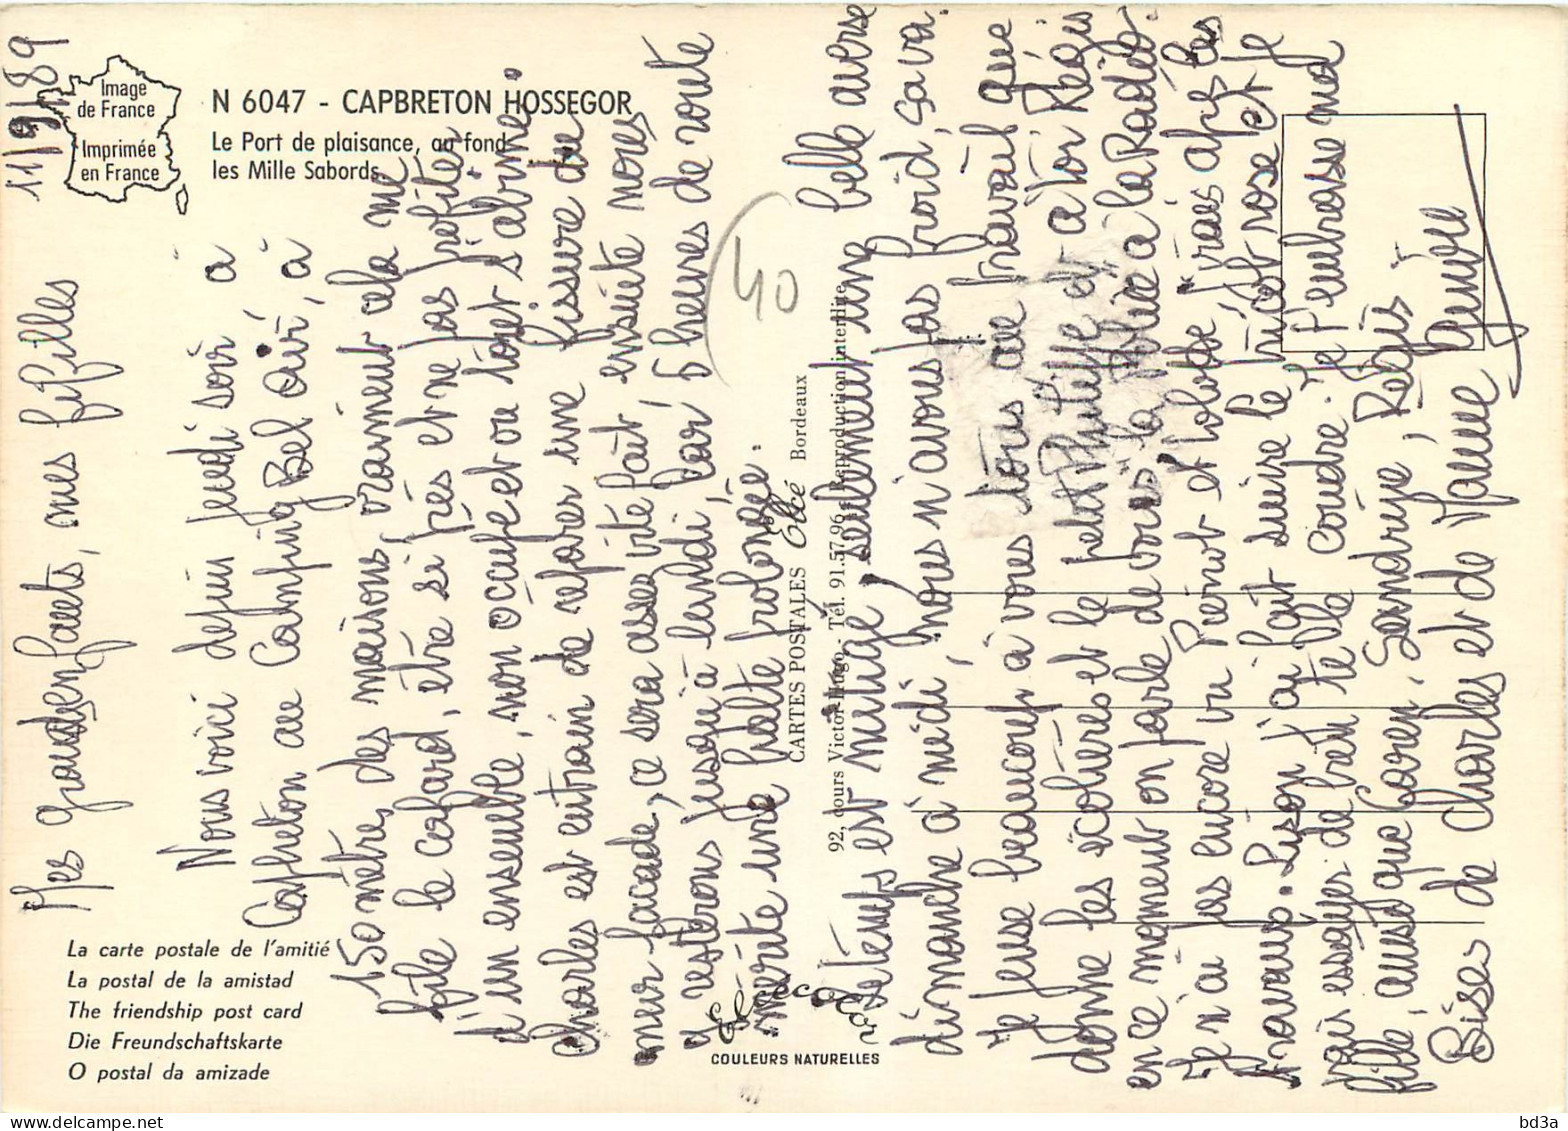 11/9/89
Image
de France
Imprimée
en France
N 6047 - CAPBRETON HOSSEGOR
Le Port de plaisance, au fond
les Mille Sabords.
La carte postale de l'amitié
La postal de la amistad
The friendship post card
Die Freundschaftskarte
O postal da amizade
Mes grandsenfants, mes fifilles
Nous voici depuis jeudi soir à
Capbreton au Camping Bel air, à
150 mètres des maisons, vraiment cela me
file le cafard, être si près et ne pas profiter
d'un ensemble, non occupé et où tout s'abime.
Charles est entrain de réparer une fissure du
mur façade, ce sera assez vite fait, ensuite nous
y resterons jusqu'à lundi, car 5 heures de route
mérite une halte prolongée.
Le temps est mitigé, seulement une belle averse
dimanche à midi, nous n'avons pas froid, sava.
Je pense beaucoup à vous tous au travail que
donne les écoliers et le à toi Régis
en ce moment on parle de vous à la Radio.
Je n'ai pas encore vu Pierrot et Lolotte vrais après les
travaux. Lison j'ai fait suivre le tricot rose et je
vais essayer de bien te le coudre. Je t'embrasse ma
fille, ainsi que Karen, Sandrine, Régis
Bises de Charles et de Mamie
40
Elcécolor
COULEURS NATURELLES
CARTES POSTALES Elcé Bordeaux
92, cours Victor-Hugo - Tél. 91.57.96 - Reproduction interdite